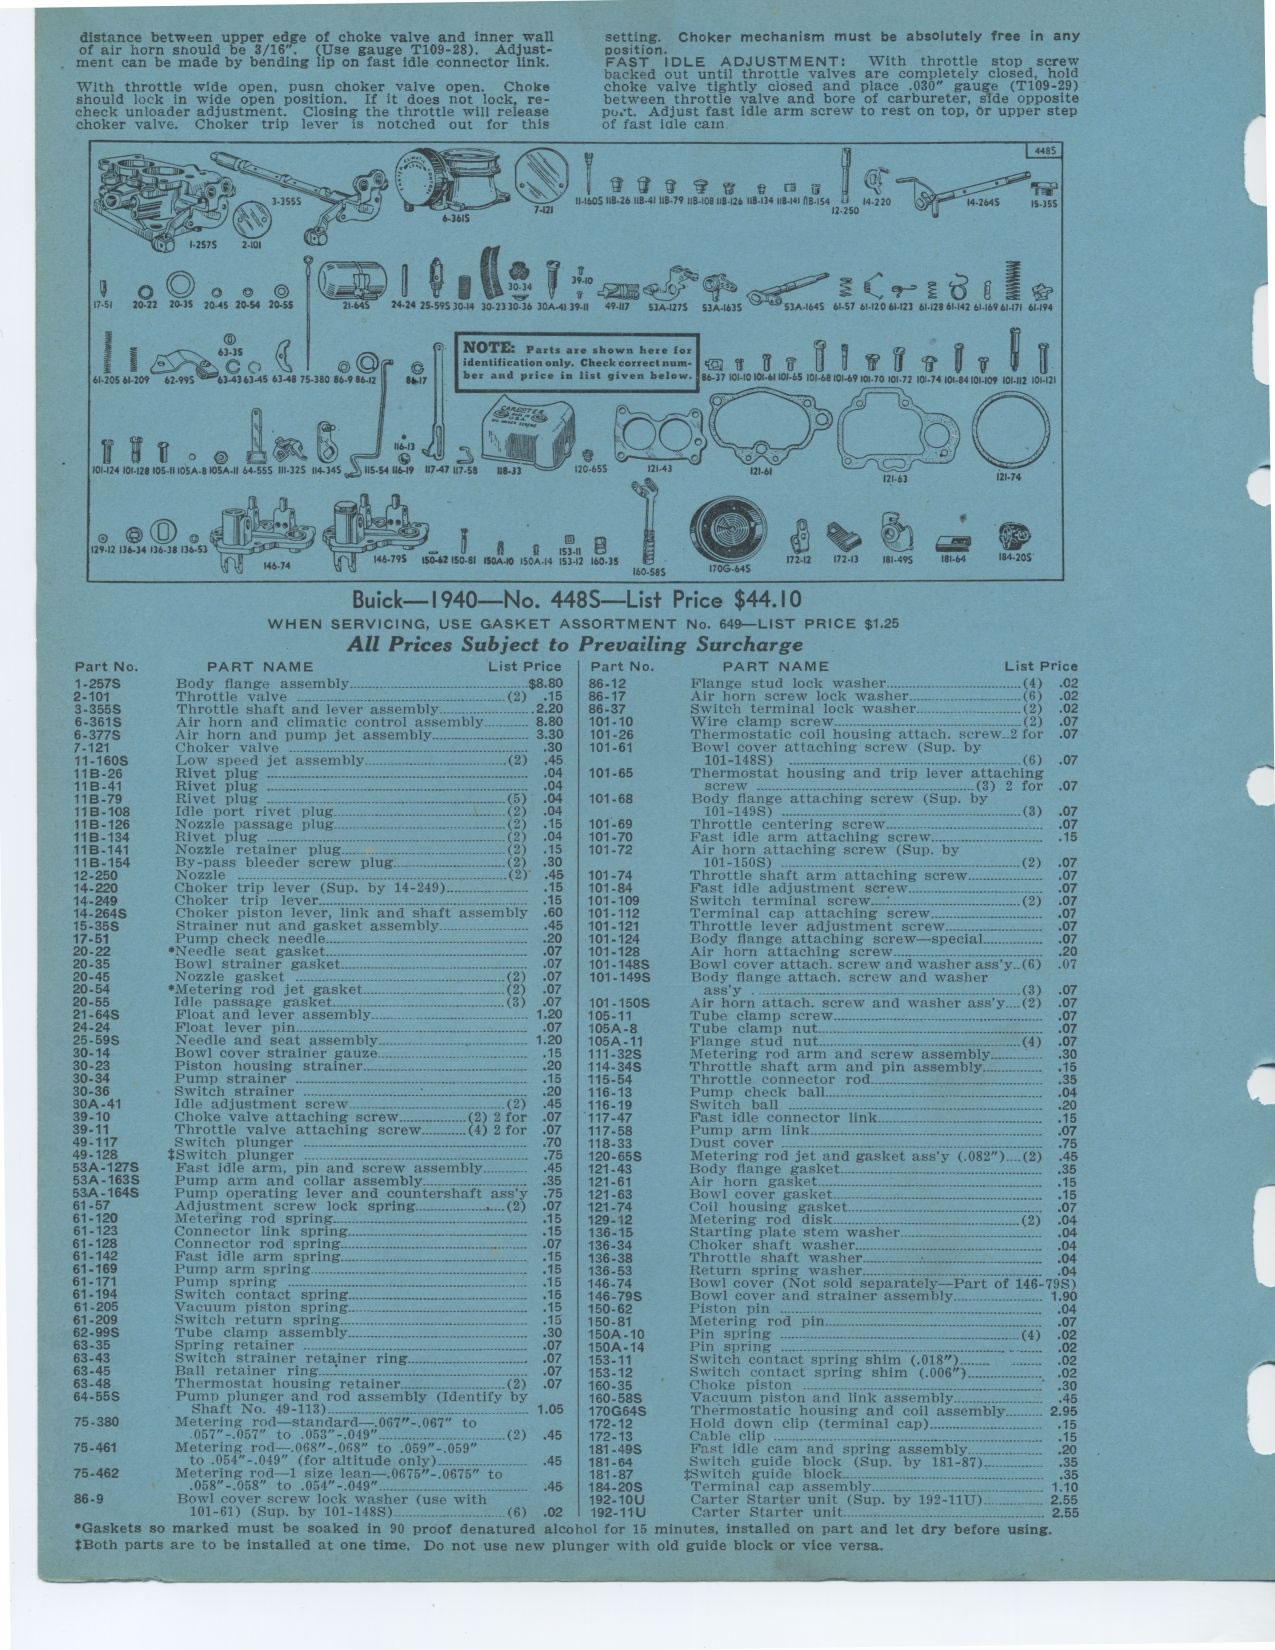 distance between upper edge of choke valve and inner wall
of air horn should be 3/16". (Use gauge T109-28). Adjust-
ment can be made by bending lip on fast idle connector link.
With throttle wide open, pusn choker valve open. Choke
should lock in wide open position. If it does not lock, re-
check unloader adjustment. Closing the throttle will release
choker valve. Choker trip lever is notched out for this
setting. Choker mechanism must be absolutely free in any
position.
FAST IDLE ADJUSTMENT: With throttle stop screw
backed out until throttle valves are completely closed, hold
choke valve tightly closed and place .030" gauge (T109-29)
between throttle valve and bore of carbureter, side opposite
port. Adjust fast idle arm screw to rest on top, or upper step
of fast idle cam
448S
1-257S 2-101 3-355S 6-361S 7-121 11-160S 11B-26 11B-41 11B-79 11B-108 11B-126 11B-134 11B-141 11B-154 12-250 14-220 14-264S 15-35S
17-51 20-22 20-35 20-45 20-54 20-55 21-64S 24-24 25-59S 30-14 30-23 30-34 30-36 30A-41 39-10 39-11 49-117 53A-127S 53A-163S 53A-164S 61-57 61-120 61-123 61-128 61-142 61-169 61-171 61-194
61-205 61-209 62-99S 63-35 63-43 63-45 63-48 75-380 86-9 86-12 86-17
NOTE: Parts are shown here for
identification only. Check correct num-
ber and price in list given below.
86-37 101-10 101-61 101-65 101-68 101-69 101-70 101-72 101-74 101-84 101-109 101-112 101-121
101-124 101-128 105-11 105A-8 105A-11 64-55S 111-32S 114-34S 115-54 116-13 116-19 117-47 117-58 118-33 120-65S 121-43 121-61 121-63 121-74
129-12 136-34 136-38 136-53 146-74 146-79S 150-62 150-81 150A-10 150A-14 153-11 153-12 160-35 160-58S 170G-64S 172-12 172-13 181-49S 181-64 184-20S
Buick—1940—No. 448S—List Price $44.10
WHEN SERVICING, USE GASKET ASSORTMENT No. 649—LIST PRICE $1.25
All Prices Subject to Prevailing Surcharge
Part No. PART NAME List Price
1-257S Body flange assembly $8.80
2-101 Throttle valve (2) .15
3-355S Throttle shaft and lever assembly 2.20
6-361S Air horn and climatic control assembly 8.80
6-377S Air horn and pump jet assembly 3.30
7-121 Choker valve .30
11-160S Low speed jet assembly (2) .45
11B-26 Rivet plug .04
11B-41 Rivet plug .04
11B-79 Rivet plug (5) .04
11B-108 Idle port rivet plug (2) .04
11B-126 Nozzle passage plug (2) .15
11B-134 Rivet plug (2) .04
11B-141 Nozzle retainer plug (2) .15
11B-154 By-pass bleeder screw plug (2) .30
12-250 Nozzle (2) .45
14-220 Choker trip lever (Sup. by 14-249) .15
14-249 Choker trip lever .15
14-264S Choker piston lever, link and shaft assembly .60
15-35S Strainer nut and gasket assembly .45
17-51 Pump check needle .20
20-22 *Needle seat gasket .07
20-35 Bowl strainer gasket .07
20-45 Nozzle gasket (2) .07
20-54 *Metering rod jet gasket (2) .07
20-55 Idle passage gasket (3) .07
21-64S Float and lever assembly 1.20
24-24 Float lever pin .07
25-59S Needle and seat assembly 1.20
30-14 Bowl cover strainer gauze .15
30-23 Piston housing strainer .20
30-34 Pump strainer .15
30-36 Switch strainer .20
30A-41 Idle adjustment screw (2) .45
39-10 Choke valve attaching screw (2) 2 for .07
39-11 Throttle valve attaching screw (4) 2 for .07
49-117 Switch plunger .70
49-128 ‡Switch plunger .75
53A-127S Fast idle arm, pin and screw assembly .45
53A-163S Pump arm and collar assembly .35
53A-164S Pump operating lever and countershaft ass'y .75
61-57 Adjustment screw lock spring (2) .07
61-120 Metering rod spring .15
61-123 Connector link spring .15
61-128 Connector rod spring .07
61-142 Fast idle arm spring .15
61-169 Pump arm spring .15
61-171 Pump spring .15
61-194 Switch contact spring .15
61-205 Vacuum piston spring .15
61-209 Switch return spring .15
62-99S Tube clamp assembly .30
63-35 Spring retainer .07
63-43 Switch strainer retainer ring .07
63-45 Ball retainer ring .07
63-48 Thermostat housing retainer (2) .07
64-55S Pump plunger and rod assembly (Identify by
Shaft No. 49-113) 1.05
75-380 Metering rod—standard—.067"-.067" to
.057"-.057" to .053"-.049" (2) .45
75-461 Metering rod—.068"-.068" to .059"-.059"
to .054"-.049" (for altitude only) .45
75-462 Metering rod—1 size lean—.0675"-.0675" to
.058"-.058" to .054"-.049" .45
86-9 Bowl cover screw lock washer (use with
101-61) (Sup. by 101-148S) (6) .02
Part No. PART NAME List Price
86-12 Flange stud lock washer (4) .02
86-17 Air horn screw lock washer (6) .02
86-37 Switch terminal lock washer (2) .02
101-10 Wire clamp screw (2) .07
101-26 Thermostatic coil housing attach. screw 2 for .07
101-61 Bowl cover attaching screw (Sup. by
101-148S) (6) .07
101-65 Thermostat housing and trip lever attaching
screw (3) 2 for .07
101-68 Body flange attaching screw (Sup. by
101-149S) (3) .07
101-69 Throttle centering screw .07
101-70 Fast idle arm attaching screw .15
101-72 Air horn attaching screw (Sup. by
101-150S) (2) .07
101-74 Throttle shaft arm attaching screw .07
101-84 Fast idle adjustment screw .07
101-109 Switch terminal screw (2) .07
101-112 Terminal cap attaching screw .07
101-121 Throttle lever adjustment screw .07
101-124 Body flange attaching screw—special .07
101-128 Air horn attaching screw .20
101-148S Bowl cover attach. screw and washer ass'y (6) .07
101-149S Body flange attach. screw and washer
ass'y (3) .07
101-150S Air horn attach. screw and washer ass'y (2) .07
105-11 Tube clamp screw .07
105A-8 Tube clamp nut .07
105A-11 Flange stud nut (4) .07
111-32S Metering rod arm and screw assembly .30
114-34S Throttle shaft arm and pin assembly .15
115-54 Throttle connector rod .35
116-13 Pump check ball .04
116-19 Switch ball .20
117-47 Fast idle connector link .15
117-58 Pump arm link .07
118-33 Dust cover .75
120-65S Metering rod jet and gasket ass'y (.082") (2) .45
121-43 Body flange gasket .35
121-61 Air horn gasket .15
121-63 Bowl cover gasket .15
121-74 Coil housing gasket .07
129-12 Metering rod disk (2) .04
136-15 Starting plate stem washer .04
136-34 Choker shaft washer .04
136-38 Throttle shaft washer .04
136-53 Return spring washer .04
146-74 Bowl cover (Not sold separately—Part of 146-79S)
146-79S Bowl cover and strainer assembly 1.90
150-62 Piston pin .04
150-81 Metering rod pin .07
150A-10 Pin spring (4) .02
150A-14 Pin spring .02
153-11 Switch contact spring shim (.018") .02
153-12 Switch contact spring shim (.006") .02
160-35 Choke piston .30
160-58S Vacuum piston and link assembly .45
170G64S Thermostatic housing and coil assembly 2.95
172-12 Hold down clip (terminal cap) .15
172-13 Cable clip .15
181-49S Fast idle cam and spring assembly .20
181-64 Switch guide block (Sup. by 181-87) .35
181-87 ‡Switch guide block .35
184-20S Terminal cap assembly 1.10
192-10U Carter Starter unit (Sup. by 192-11U) 2.55
192-11U Carter Starter unit 2.55
*Gaskets so marked must be soaked in 90 proof denatured alcohol for 15 minutes, installed on part and let dry before using.
‡Both parts are to be installed at one time. Do not use new plunger with old guide block or vice versa.